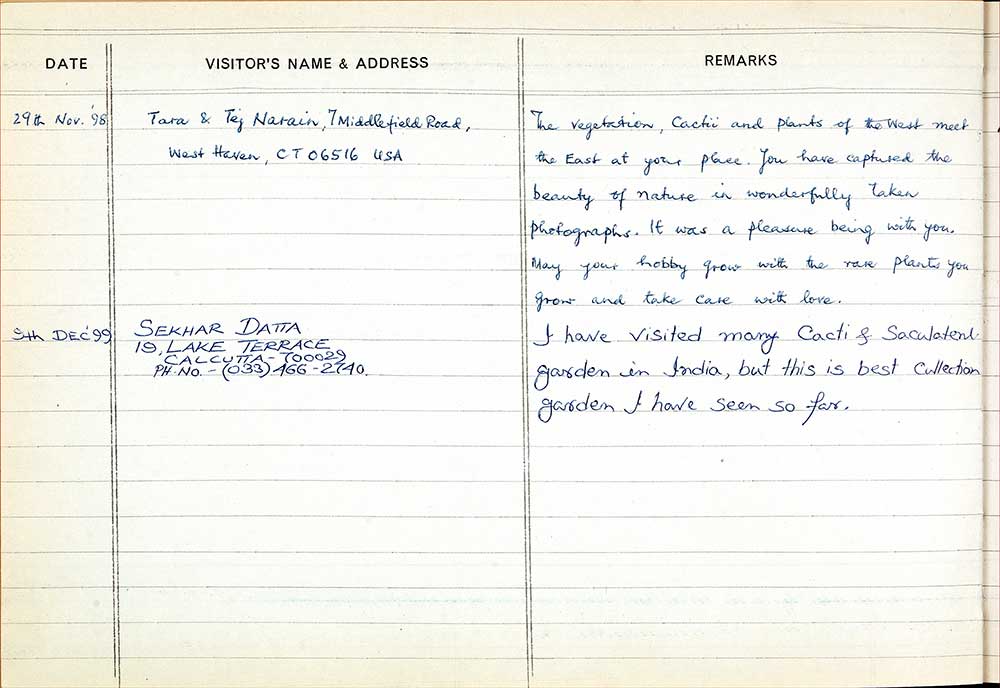 DATE VISITOR'S NAME & ADDRESS REMARKS
29th Nov. '98 Tara & Tej Narain, 7 Middlefield Road, The vegetation, Cactii and plants of the West meet
West Haven, CT 06516 USA the East at your place. You have captured the
beauty of nature in wonderfully taken
photographs. It was a pleasure being with you.
May your hobby grow with the rare plants you
grow and take care with love.
5th DEC '99 SEKHAR DATTA I have visited many Cacti & Saculatent
19, LAKE TERRACE
CALCUTTA - 700029 garden in India, but this is best Cullection
PH. NO. - (033) 466-2740.
garden I have seen so far.